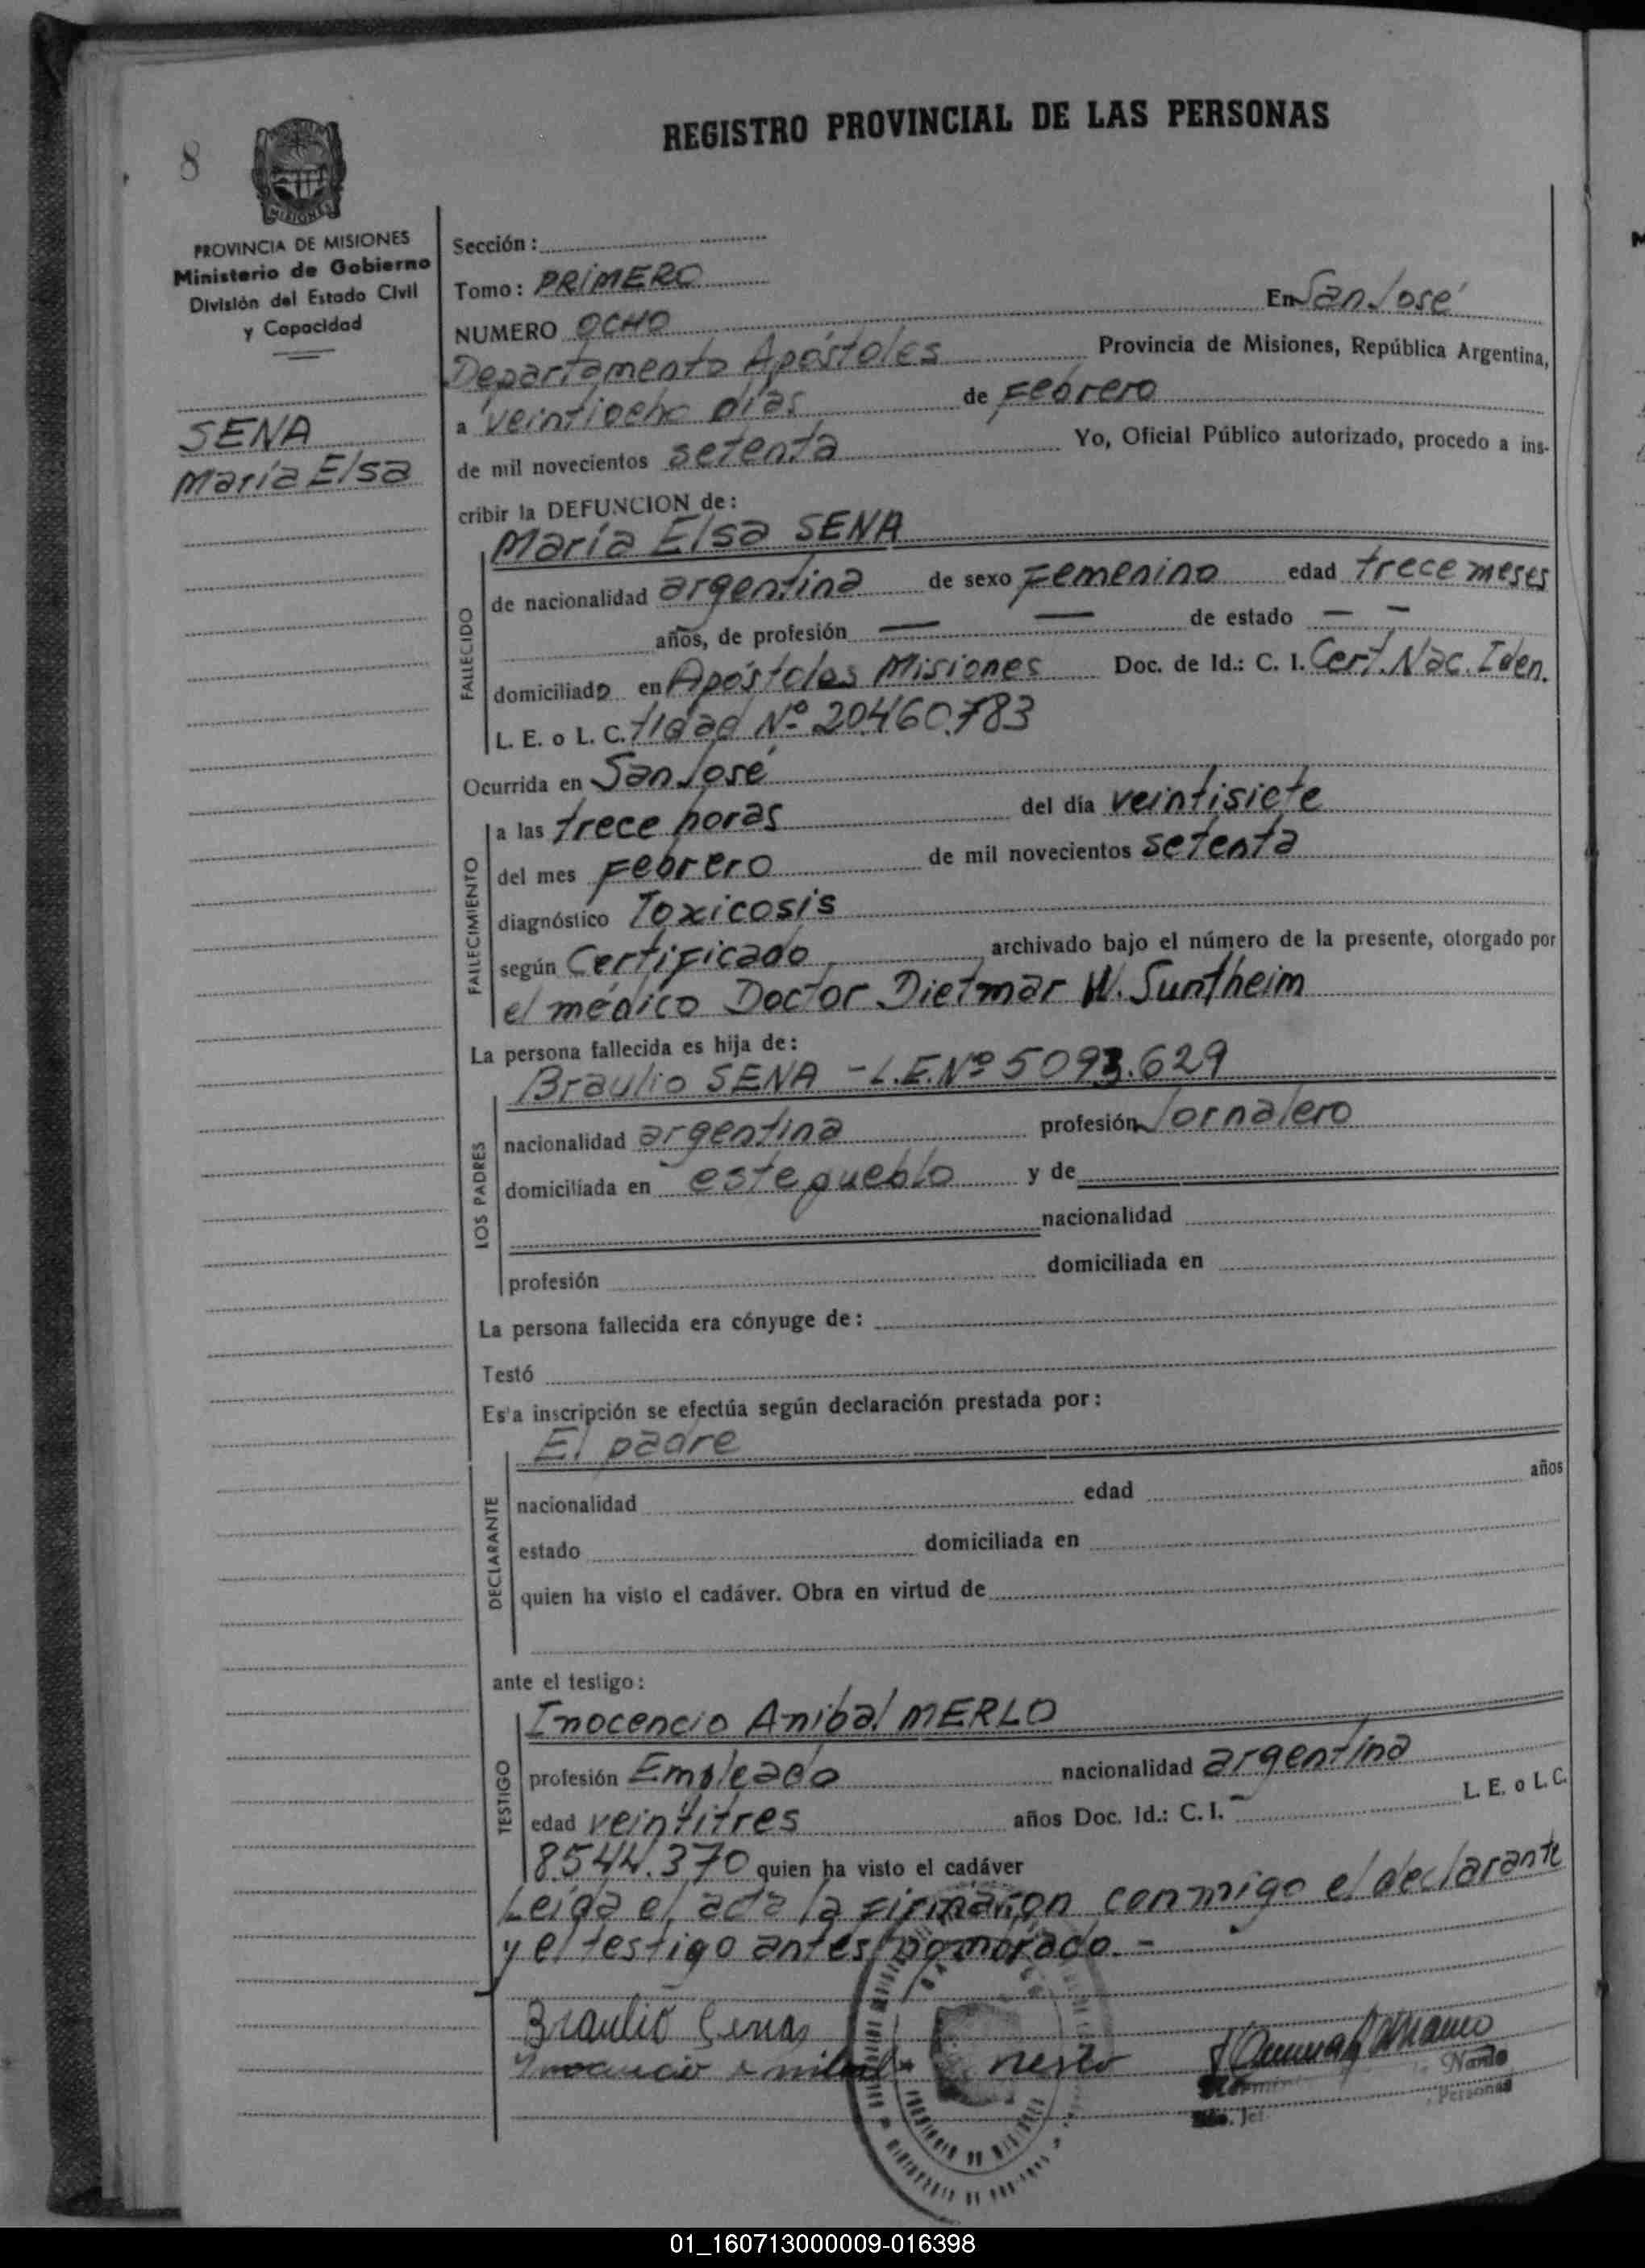 REGISTRO PROVINCIAL DE LAS PERSONAS
8
MISIONES
PROVINCIA DE MISIONES
Ministerio de Gobierno
División del Estado Civil
y Capacidad
SENA
María Elsa
Sección:
Tomo: PRIMERO
NUMERO OCHO En San José
Departamento Apóstoles Provincia de Misiones, República Argentina,
a veintiocho días de Febrero
de mil novecientos setenta Yo, Oficial Público autorizado, procedo a ins-
cribir la DEFUNCION de:
María Elsa SENA
FALLECIDO
de nacionalidad argentina de sexo Femenino edad trece meses
años, de profesión — — de estado — —
domiciliado en Apóstoles Misiones Doc. de Id.: C. I. Cert. Nac. Iden.
L. E. o L. C. tidad Nº 20.460.783
Ocurrida en San José
FALLECIMIENTO
a las trece horas del día veintisiete
del mes Febrero de mil novecientos setenta
diagnóstico Toxicosis
según Certificado archivado bajo el número de la presente, otorgado por
el médico Doctor Dietmar W. Suntheim
La persona fallecida es hija de:
Braulio SENA - L.E.Nº 5093.629
LOS PADRES
nacionalidad argentina profesión Jornalero
domiciliada en este pueblo y de
nacionalidad
profesión domiciliada en
La persona fallecida era cónyuge de:
Testó
Esta inscripción se efectúa según declaración prestada por:
El padre
DECLARANTE
nacionalidad edad años
estado domiciliada en
quien ha visto el cadáver. Obra en virtud de
ante el testigo:
Inocencio Anibal MERLO
TESTIGO
profesión Empleado nacionalidad argentina
edad veintitres años Doc. Id.: C. I. - L. E. o L. C.
8544.370 quien ha visto el cadáver
Leída el acta la firmaron conmigo el declarante
y el testigo antes nomorado. -
Braulio Senas
Nardo
01_160713000009-016398